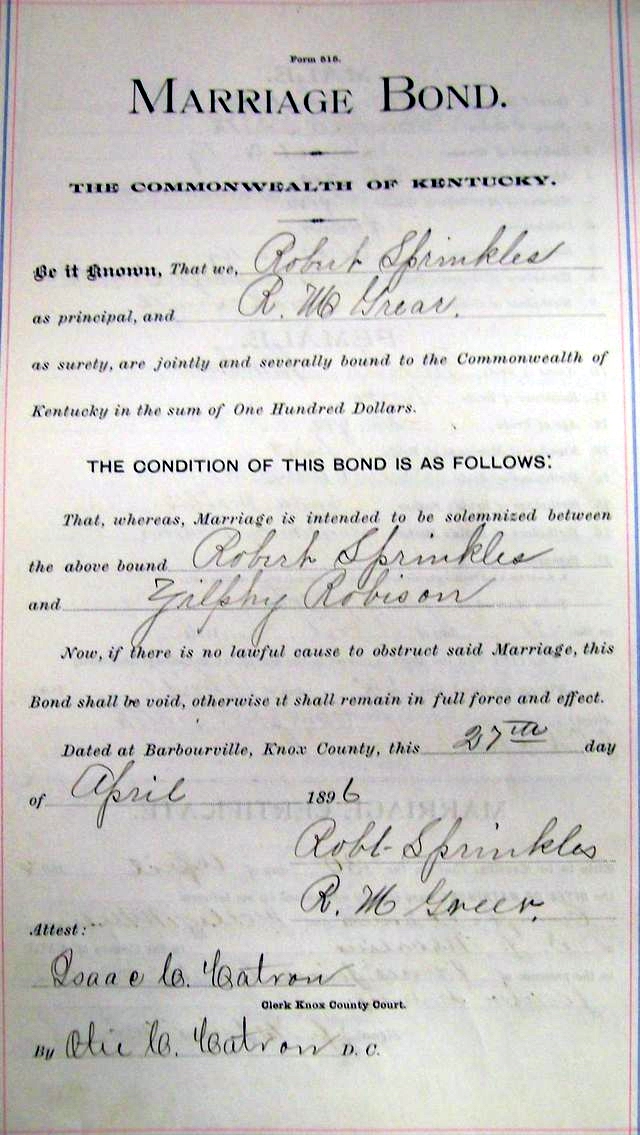 Form 515.
MARRIAGE BOND.
THE COMMONWEALTH OF KENTUCKY.
Be it Known, That we, Robert Sprinkles
as principal, and R. M Grear.
as surety, are jointly and severally bound to the Commonwealth of
Kentucky in the sum of One Hundred Dollars.
THE CONDITION OF THIS BOND IS AS FOLLOWS:
That, whereas, Marriage is intended to be solemnized between
the above bound Robert Sprinkles
and Zilphy Robison
Now, if there is no lawful cause to obstruct said Marriage, this
Bond shall be void, otherwise it shall remain in full force and effect.
Dated at Barbourville, Knox County, this 27th day
of April 1896
Robt- Sprinkles
R. M Greer.
Attest:
Isaac C. Catron
Clerk Knox County Court.
By Olie C. Catron D. C.